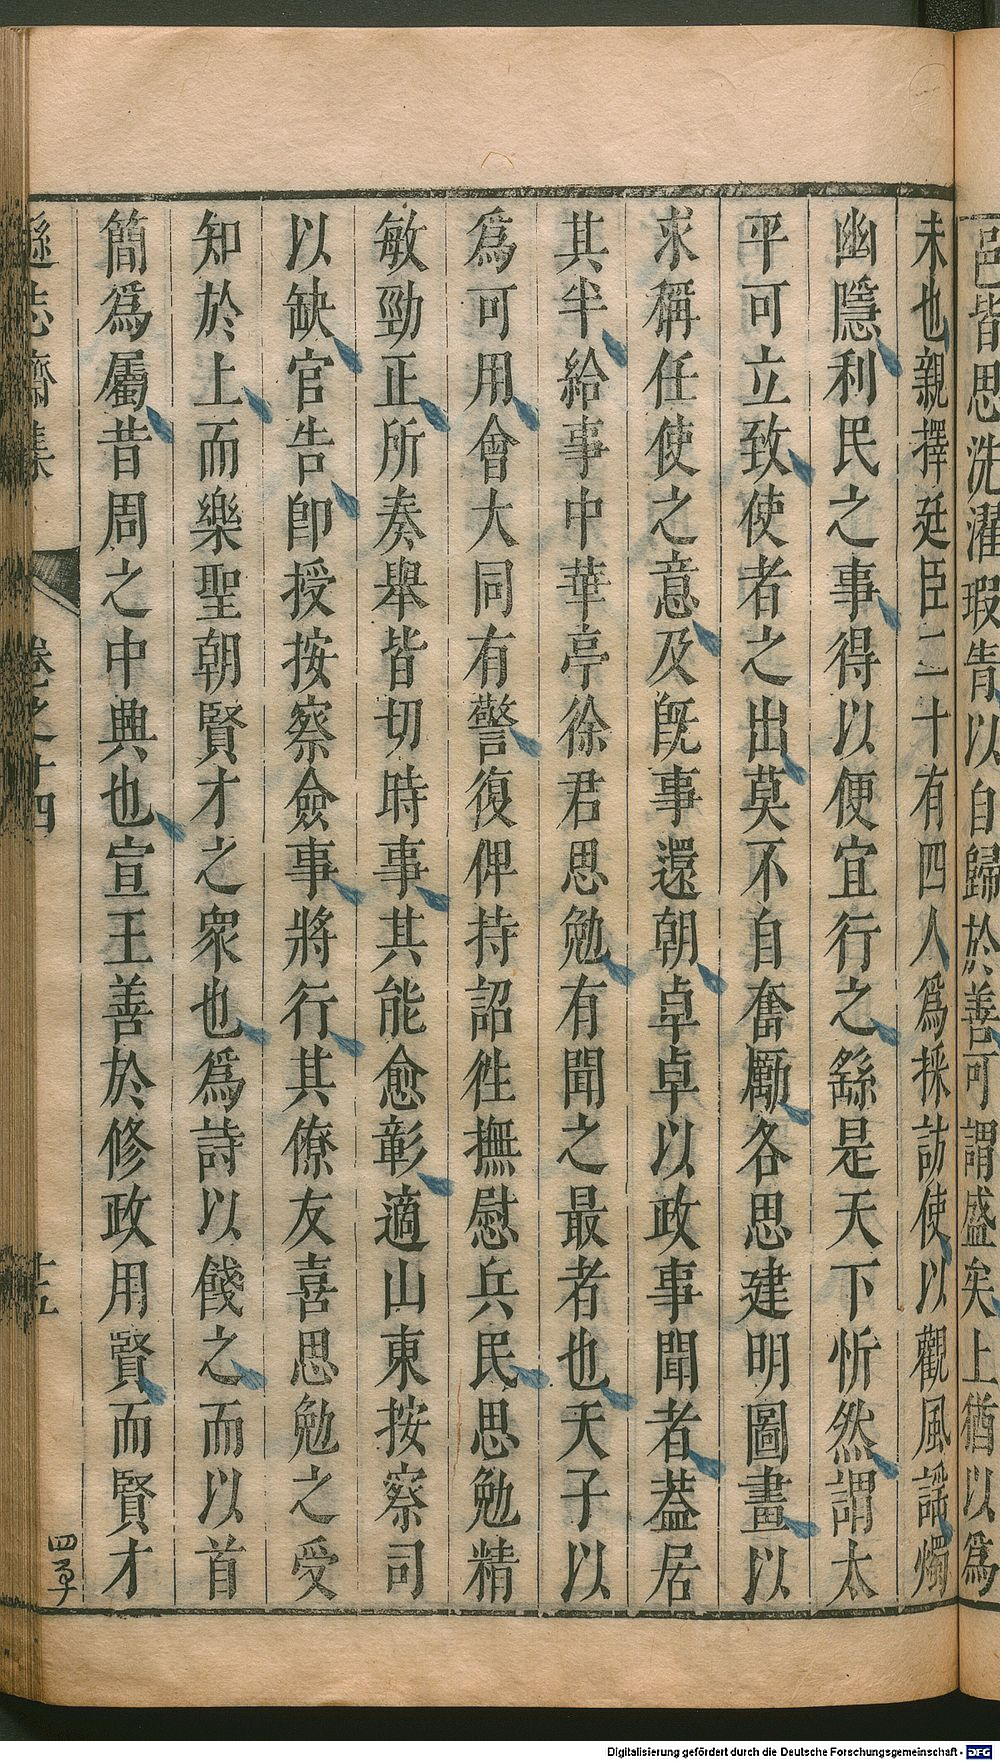 邑皆思洗濯瑕眚以自歸於善可謂盛矣上猶以爲
未也親擇廷臣二十有四人爲採訪使以觀風謡燭
幽隱利民之事得以便宜行之繇是天下忻然謂太
平可立致使者之出莫不自奮勵各思建明圖畫以
求稱任使之意及旣事還朝卓卓以政事聞者葢居
其半給事中華亭徐君思勉有聞之最者也天子以
爲可用會大同有警復俾持詔徃撫慰兵民思勉精
敏勁正所奏舉皆切時事其能愈彰適山東按察司
以缺官告即授按察僉事將行其僚友喜思勉之受
知於上而樂聖朝賢才之衆也爲詩以餞之而以首
簡爲屬昔周之中典也宣王善於修政用賢而賢才
遜志齋集 卷之十四 十五
Digitalisierung gefördert durch die Deutsche Forschungsgemeinschaft - DFG